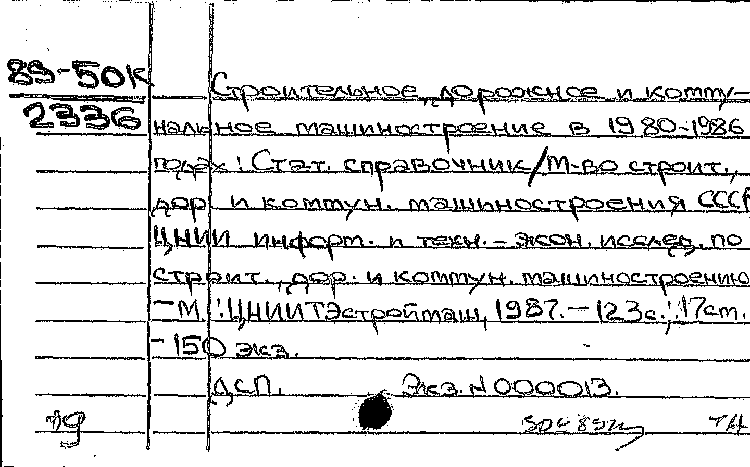 89-50К
2336
Строительное, дорожное и комму-
нальное машиностроение в 1980-1986
годах: Стат. справочник/М-во строит.,
дор. и коммун. машиностроения СССР
ЦНИИ информ. и техн.-экон. исслед. по
строит., дор. и коммун. машиностроению
-М.:ЦНИИТЭстроймаш, 1987.-123с.;17см.
-150 экз.
ДСП. Экз.N000013.